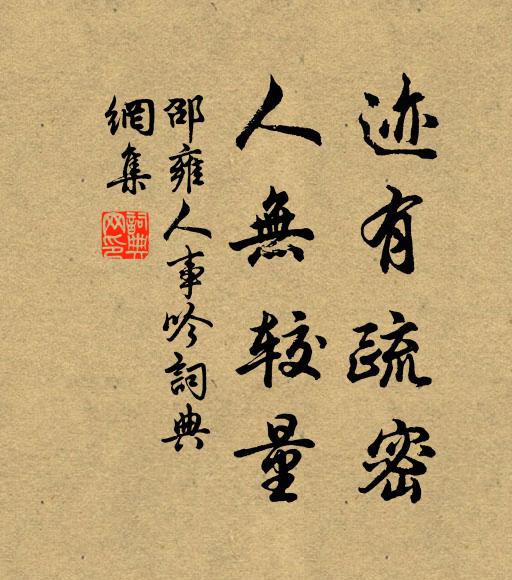 迹有疏密
人無较量
邵雍人事吟詞典
網集
詞典
网印